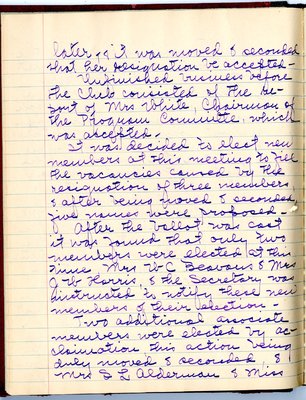 later, & it was moved & seconded
that her resignation be accepted -
Unfinished business before
the Club consisted of the Re-
port of Mrs White, Chairman of
the Program Committee, which
was accepted.
It was decided to elect new
members at this meeting to fill
the vacancies caused by the
resignation of three members
& after being moved & seconded
five names were proposed -
After the ballot was cast
it was found that only two
members were elected at this
time, Mrs W C Beavans & Mrs
J. W. Harris, & the Secretary was
instructed to notify these new
members of their election -
Two additional associate
members were elected by ac-
clamation this action being
duly moved & seconded, &
Mrs S L Alderman & Miss